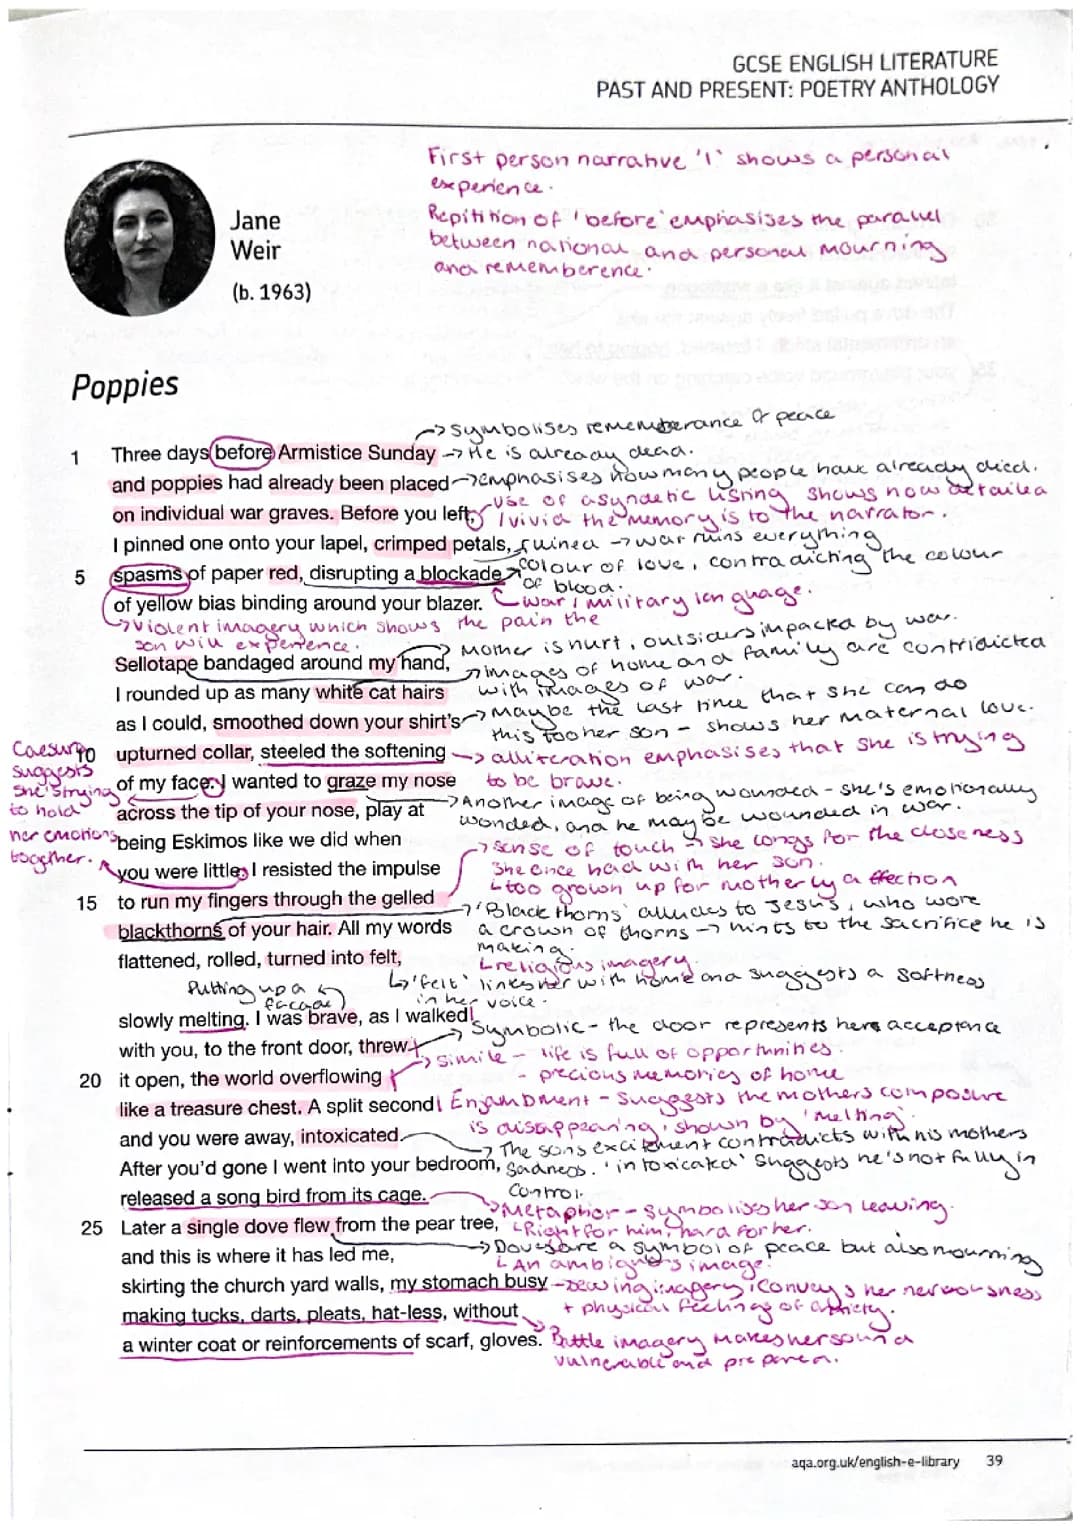 GCSE ENGLISH LITERATURE
PAST AND PRESENT: POETRY ANTHOLOGY
First person narrative 'I' shows a personal
experience.
Repitition of 'before' emphasises the parallel
between national and personal mourning
and rememberence.
Jane
Weir
(b. 1963)
Poppies
→ Symbolises rememberance & peace
1 Three days before Armistice Sunday → He is already dead.
and poppies had already been placed → emphasises how many people have already died.
on individual war graves. Before you left, use of asyndetic listing shows how detailed
/ vivid the memory is to the narrator.
I pinned one onto your lapel, crimped petals, ruined → war ruins everything
5 spasms of paper red, disrupting a blockade → colour of love, contradicting the colour
of blood.
of yellow bias binding around your blazer. war / military language.
→ Violent imagery which shows the pain the
son will experience.
Mother is hurt, outsiders impacted by war.
Sellotape bandaged around my hand, → images of home and family are contridicted
with images of war.
I rounded up as many white cat hairs
as I could, smoothed down your shirt's → Maybe the last time that she can do
this too her son - shows her maternal love.
10 upturned collar, steeled the softening → alliteration emphasises that she is trying
to be brave.
Caesura
suggests
she's trying
to hold
her emotions
together.
of my face. I wanted to graze my nose
across the tip of your nose, play at → Another image of being wounded - she's emotionally
wonded, and he may be wounded in war.
being Eskimos like we did when
→ sense of touch → she longs for the closeness
she once had with her son.
you were little. I resisted the impulse
↳ too grown up for motherly affection
15 to run my fingers through the gelled
→ 'Black thorns' alludes to Jesus, who wore
blackthorns of your hair. All my words a crown of thorns → hints to the sacrifice he is
making.
flattened, rolled, turned into felt, ↳ religious imagery.
↳ 'felt' links her with home and suggests a softness
in her voice.
Putting up a
facade
slowly melting. I was brave, as I walked
→ Symbolic - the door represents here acceptance
with you, to the front door, threw
→ simile - life is full of opportunities.
- precious memories of home
20 it open, the world overflowing
like a treasure chest. A split second Enjambment - Suggests the mothers composure
is disappearing, shown by 'melting'.
and you were away, intoxicated.
→ The sons excitement contradicts with his mothers
After you'd gone I went into your bedroom, sadness. 'intoxicated' suggests he's not fully in
control.
released a song bird from its cage.
→ Metaphor - symbolises her son leaving.
25 Later a single dove flew from the pear tree, ↳ Right for him, hard for her.
→ Doves are a symbol of peace but also mourning
and this is where it has led me, ↳ An ambiguous image.
skirting the church yard walls, my stomach busy - sewing imagery conveys her nervousness
+ physical feelings of anxiety.
making tucks, darts, pleats, hat-less, without
a winter coat or reinforcements of scarf, gloves. Battle imagery makes her sound
vulnerable and
aqa.org.uk/english-e-library 39